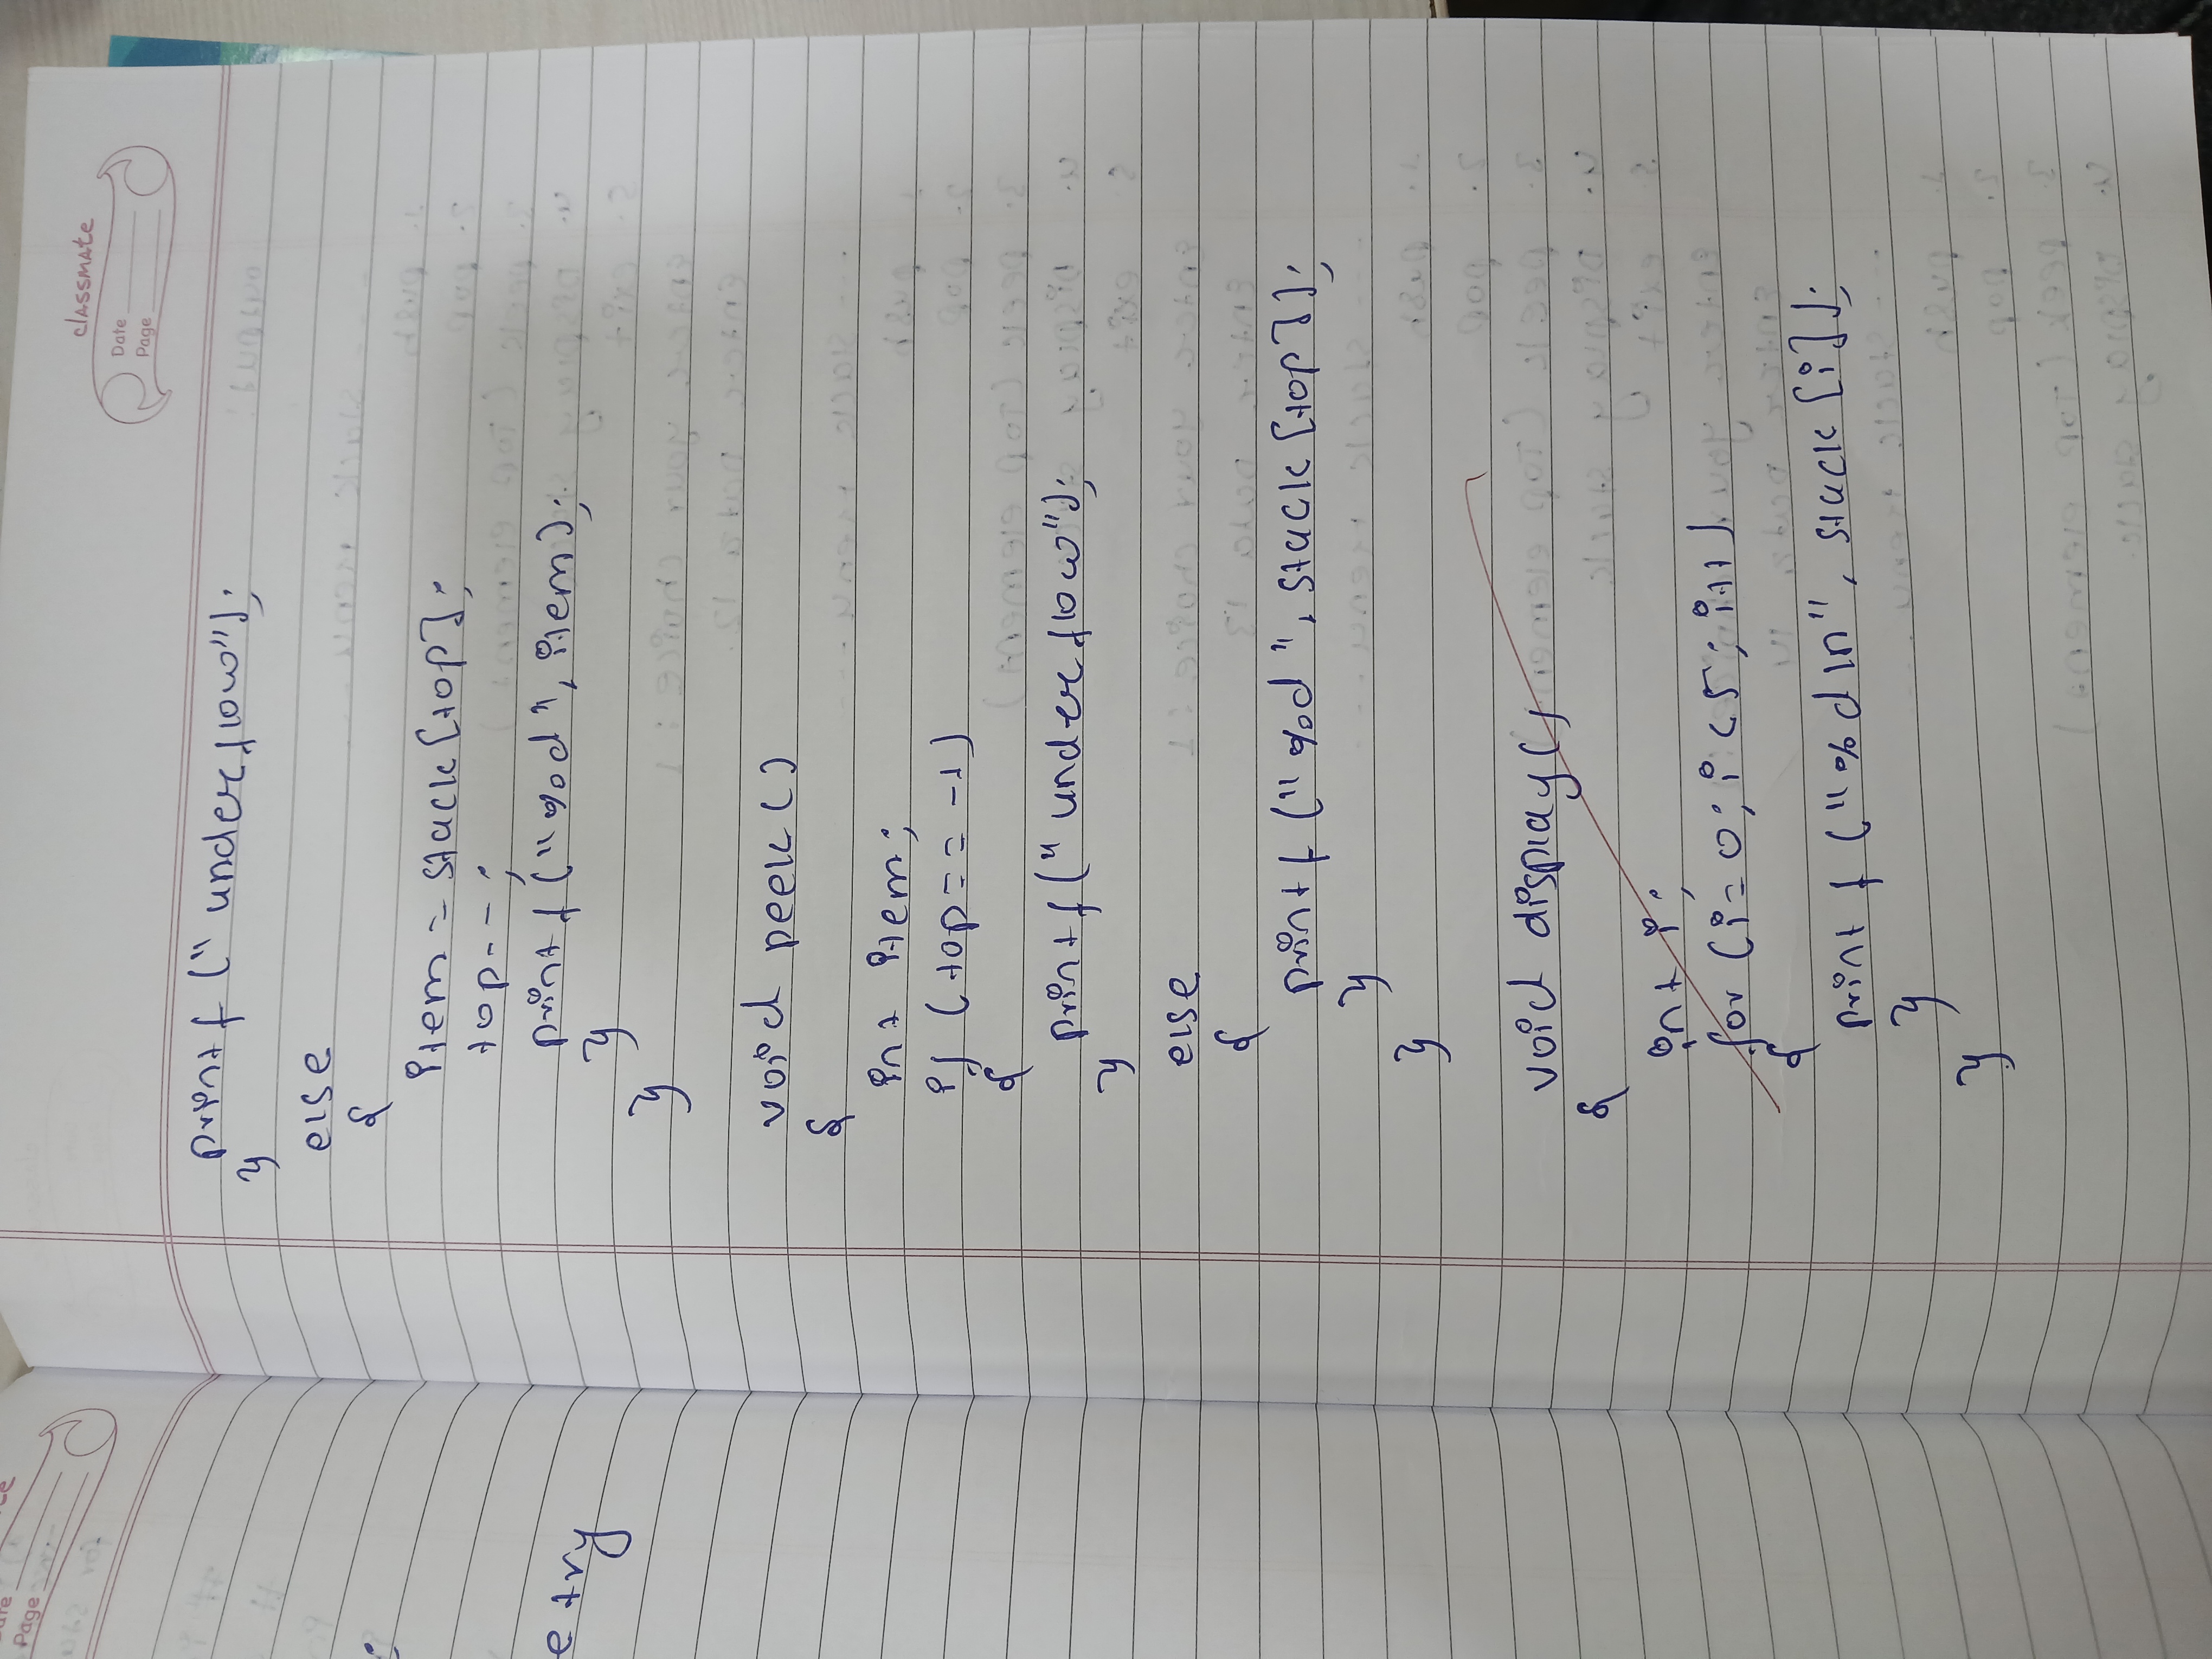 Page
classmate
Date
Page
etry
printf ("underflow");
}
else
{
item = stack[top];
top--;
printf ("%d", item);
}
}
void peek()
{
int item;
if (top== -1)
{
printf("underflow");
}
else
{
printf ("%d", stack[top]);
}
}
void display()
{
int i;
for (i=0; i<5; i++)
{
printf ("%d\n", stack[i]);
}
}